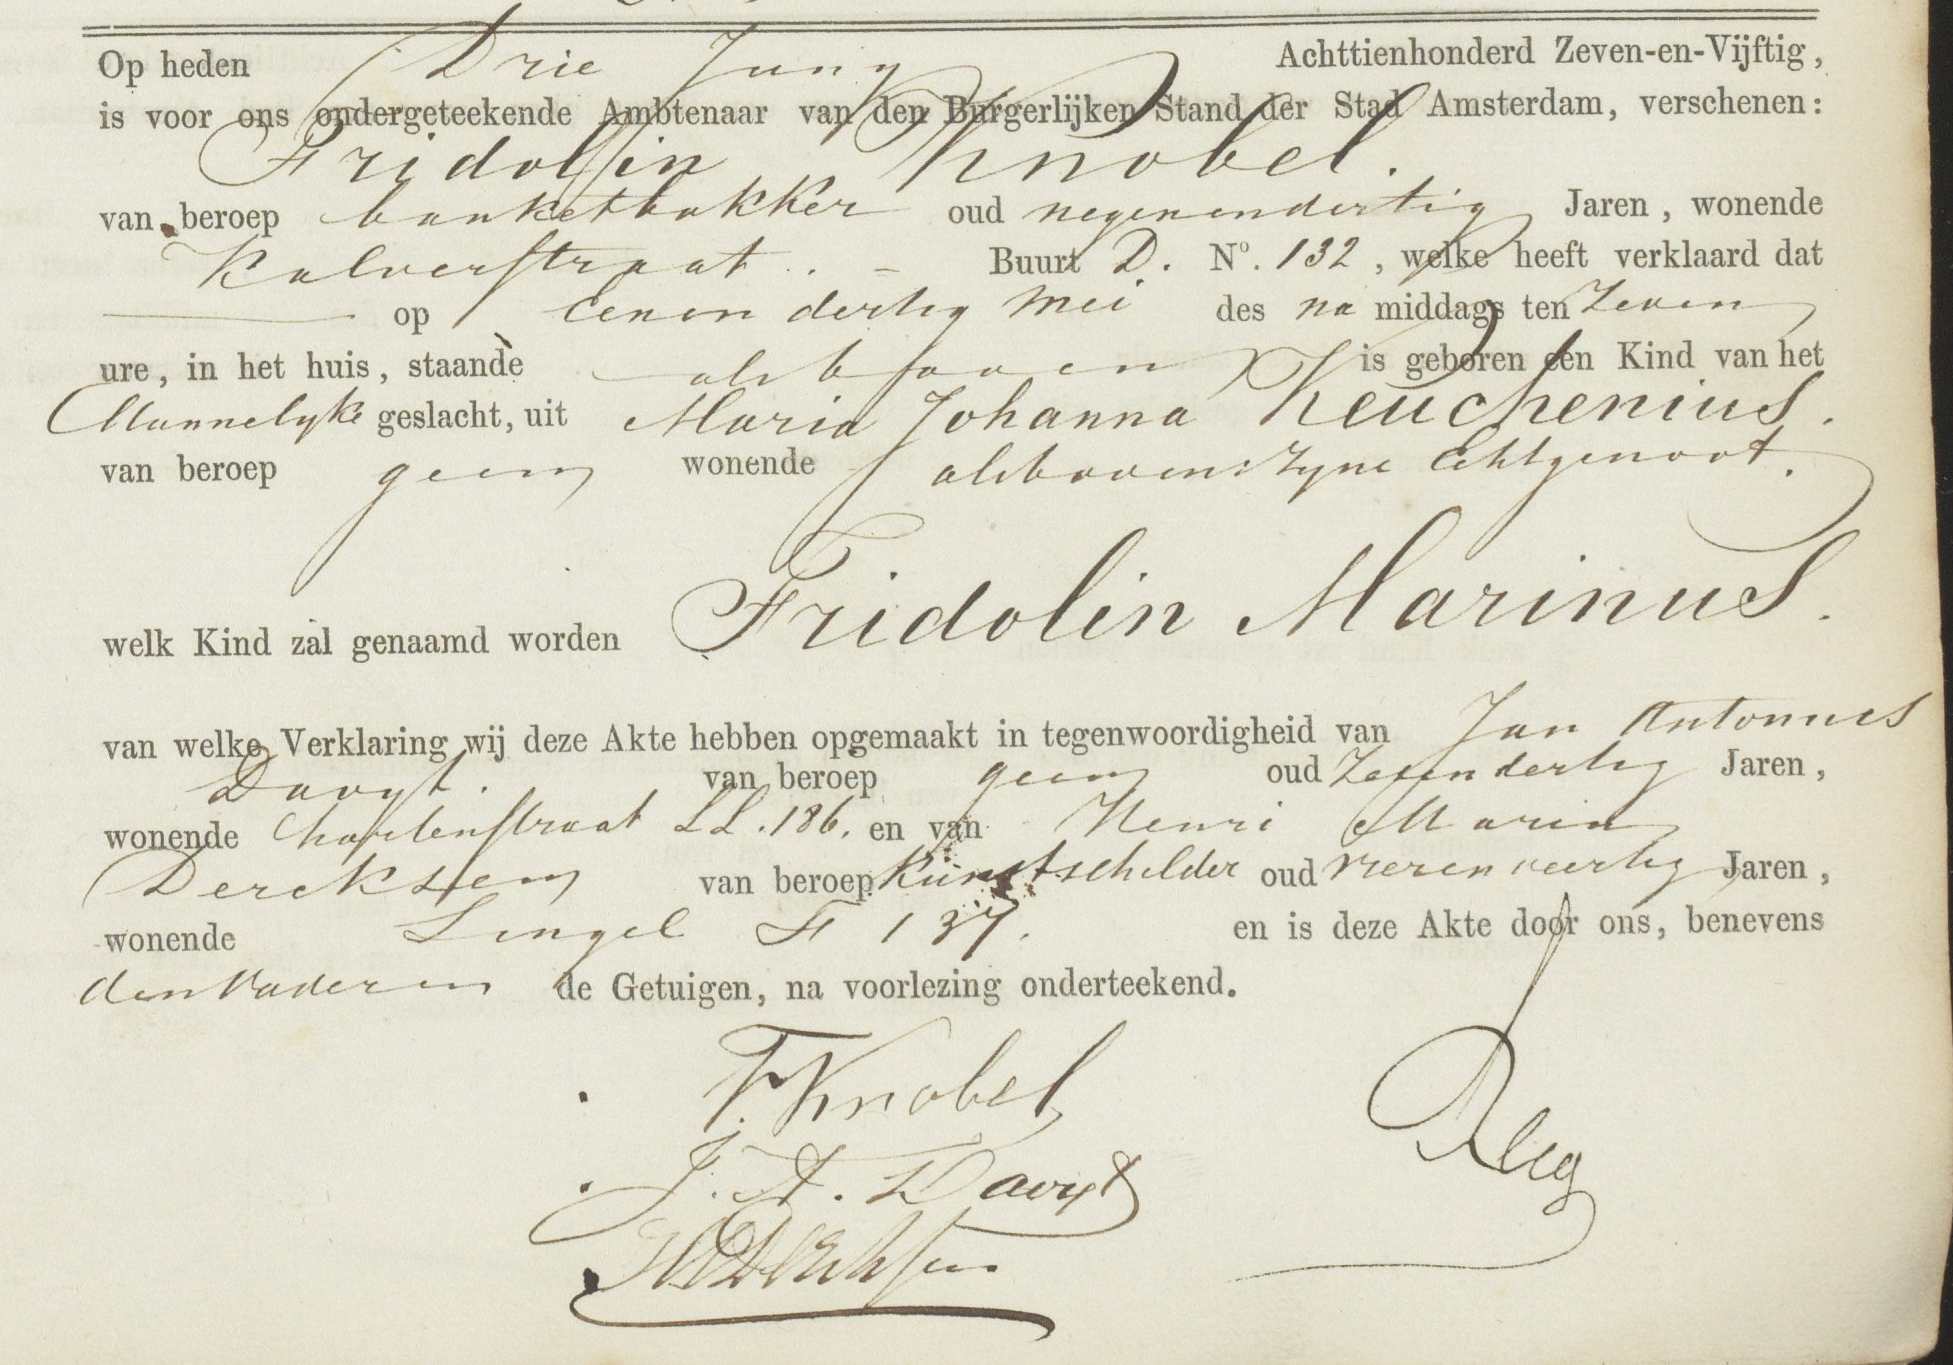 Op heden Drie Juny Achttienhonderd Zeven-en-Vijftig,
is voor ons ondergeteekende Ambtenaar van den Burgerlijken Stand der Stad Amsterdam, verschenen:
Fridolin Knobel.
van beroep banketbakker oud negenendertig Jaren, wonende
Kalverstraat Buurt D. Nº. 132, welke heeft verklaard dat
op Eenendertig Mei des na middags ten Zeven
ure, in het huis, staande alsboven is geboren een Kind van het
Mannelyk geslacht, uit Maria Johanna Keuchenius.
van beroep geen wonende alsboven: Zyne Echtgenoot.
welk Kind zal genaamd worden Fridolin Marinus.
van welke Verklaring wij deze Akte hebben opgemaakt in tegenwoordigheid van Jan Antonius
Davyt. van beroep geen oud Zesendertig Jaren,
wonende LL. 186. en van Henri Marin
Dercksen van beroep Kunstschilder oud vierenveertig Jaren,
wonende Singel F 137. en is deze Akte door ons, benevens
den Vader en de Getuigen, na voorlezing onderteekend.
F. Knobel
J. A. Davyt